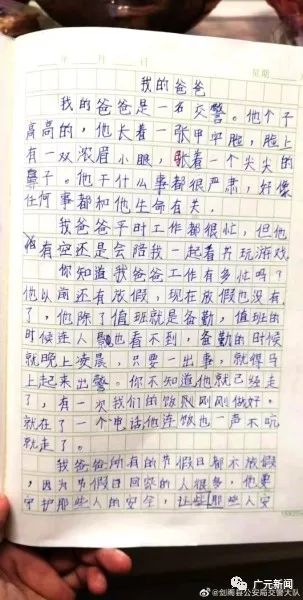 年 月 日 星期
我的爸爸
我的爸爸是一名交警。他个子
高高的，他长着一张甲字脸，脸上
有一双浓眉小眼，张着一个尖尖的
鼻子。他干什么事都很严肃，好像
任何事都和他生命有关，
我爸爸平时工作都很忙，但他
有空还是会陪我一起看书玩游戏
你知道我爸爸工作有多忙吗？
他以前还有放假，现在放假也没有
了，他除了值班就是备勤，值班的
时候连人都也看不到，备勤的时候
就晚上凌晨，只要一出事，就得马
上起来出警。你不知道他就已经走
了，有一次我们的饭刚刚做好，
就在了一个电话他连饭也一声不吭
就走了。
我爸爸所有的节假日都不放假，
因为节假日回家的人很多，他要
守护那些人的安全，让些那些人安
@剑阁县公安局交警大队
广元新闻